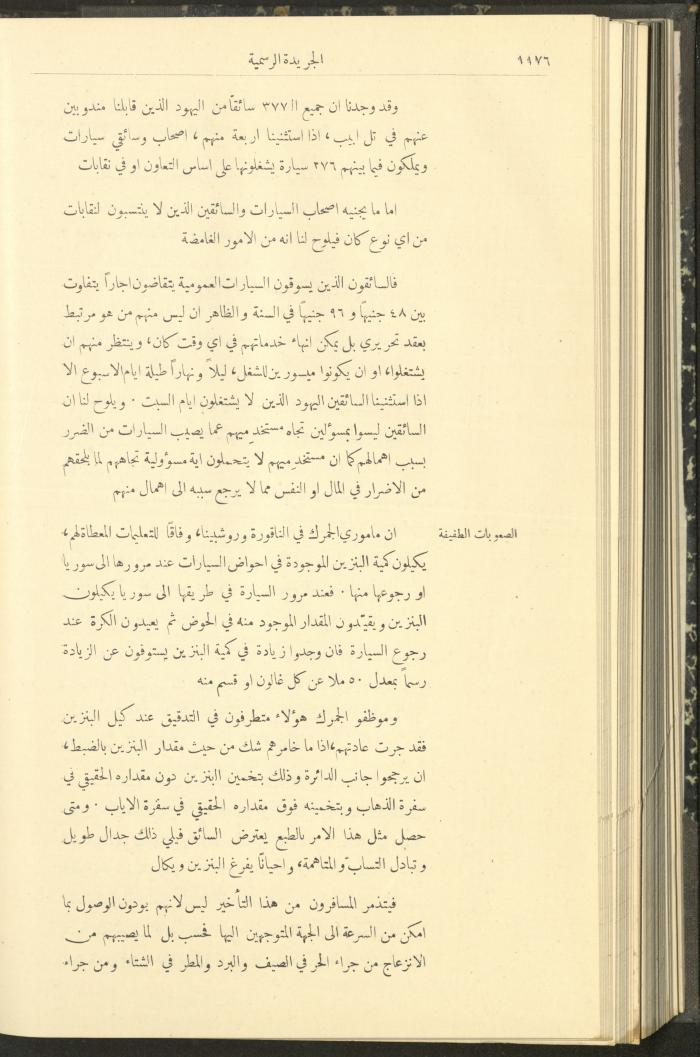 ١١٧٦
الجريدة الرسمية
وقد وجدنا ان جميع الـ ٣٧٧ سائقاً من اليهود الذين قابلنا مندوبين
عنهم في تل ابيب، اذا استثنينا اربعة منهم، اصحاب وسائقي سيارات
ويملكون فيما بينهم ٢٧٦ سيارة يشغلونها على اساس التعاون او في نقابات
اما ما يجنيه اصحاب السيارات والسائقين الذين لا ينتسبون لنقابات
من اي نوع كان فيلوح لنا انه من الامور الغامضة
فالسائقون الذين يسوقون السيارات العمومية يتقاضون اجاراً يتفاوت
بين ٤٨ جنيهاً و ٩٦ جنيهاً في السنة والظاهر ان ليس منهم من هو مرتبط
بعقد تحريري بل يمكن انهاء خدماتهم في اي وقت كان، وينتظر منهم ان
يشتغلوا، او ان يكونوا ميسورين للشغل، ليلاً ونهاراً طيلة ايام الاسبوع الا
اذا استثنينا السائقين اليهود الذين لا يشتغلون ايام السبت. ويلوح لنا ان
السائقين ليسوا بمسؤلين تجاه مستخدميهم عما يصيب السيارات من الضرر
بسبب اهمالهم كما ان مستخدميهم لا يتحملون اية مسؤولية تجاههم لما يلحقهم
من الاضرار في المال او النفس مما لا يرجع سببه الى اهمال منهم
الصعوبات الطفيفة
ان ماموري الجمرك في الناقورة وروشبينا، وفاقاً للتعليمات المعطاة لهم،
يكيلون كمية البنزين الموجودة في احواض السيارات عند مرورها الى سوريا
او رجوعها منها. فعند مرور السيارة في طريقها الى سوريا يكيلون
البنزين ويقيّدون المقدار الموجود منه في الحوض ثم يعيدون الكرة عند
رجوع السيارة فان وجدوا زيادة في كمية البنزين يستوفون عن الزيادة
رسماً بمعدل ٥٠ ملا عن كل غالون او قسم منه
وموظفو الجمرك هؤلاء متطرفون في التدقيق عند كيل البنزين
فقد جرت عادتهم، اذا ما خامرهم شك من حيث مقدار البنزين بالضبط،
ان يرجحوا جانب الدائرة وذلك بتخمين البنزين دون مقداره الحقيقي في
سفرة الذهاب وبتخمينه فوق مقداره الحقيقي في سفرة الاياب. ومتى
حصل مثل هذا الامر بالطبع يعترض السائق فيلي ذلك جدال طويل
وتبادل التساب والمتاهمة، واحياناً يفرغ البنزين ويكال
فيتذمر المسافرون من هذا التأخير ليس لانهم يودون الوصول بما
امكن من السرعة الى الجهة المتوجهين اليها فحسب بل لما يصيبهم من
الانزعاج من جراء الحر في الصيف والبرد والمطر في الشتاء ومن جراء